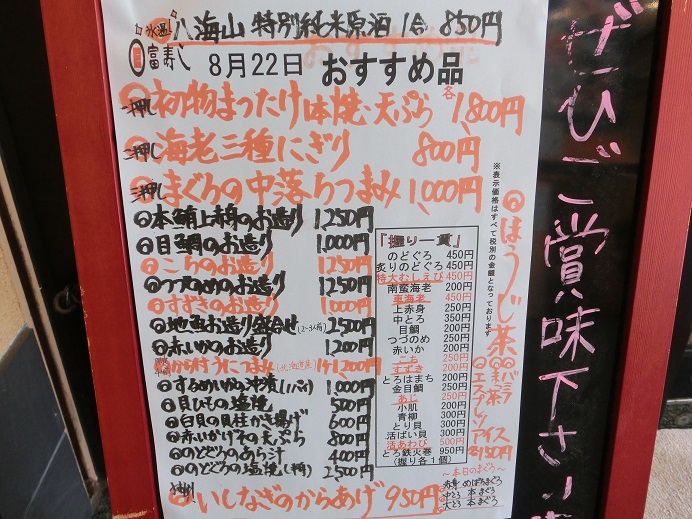 氷温 八海山 特別純米原酒 1合 850円
富寿し 8月22日 おすすめ品
一押し 初物まつたけ 体焼・天ぷら 各1,800円
二押し 海老三種にぎり 800円
三押し まぐろの中落ちつまみ 1,000円
本鮪上赤身のお造り 1,250円
目鯛のお造り 1,000円
こちのお造り 1,250円
つづのめのお造り 1,250円
すずきのお造り 1,000円
地魚お造り盛合せ(2~3人前) 2,500円
赤いかのお造り 1,200
殻付うにつまみ(北海道産) 1ヶ1,200円
するめいかの沖漬(1パイ) 1,000円
貝ひもの塩焼 500円
白貝の貝柱かき揚げ 600円
赤いかげその天ぷら 800円
のどぐろのあら汁 400円
のどぐろの塩焼(1本) 2,500円
いしなぎのからあげ 950円
※表示価格はすべて税別の金額となっております
『握り一貫』
のどぐろ 450円
炙りのどぐろ 450円
特大むしえび 450円
南蛮海老 200円
車海老 450円
上赤身 200円
中とろ 350円
目鯛 200円
つづのめ 250円
赤いか 200円
こち 250円
すずき 200円
とろはまち 200円
金目鯛 250円
あじ 250円
小肌 200円
青柳 300円
とり貝 300円
活ばい貝 300円
活あわび 500円
とろ鉄火巻 950円
(握り各1個)
ほうじ茶
バニラ
抹茶
エスプレッソ
アイス
各150円
~本日のまぐろ~
赤身 めばちまぐろ
中とろ 本まぐろ
大とろ 本まぐろ
ぜひご賞味下さい